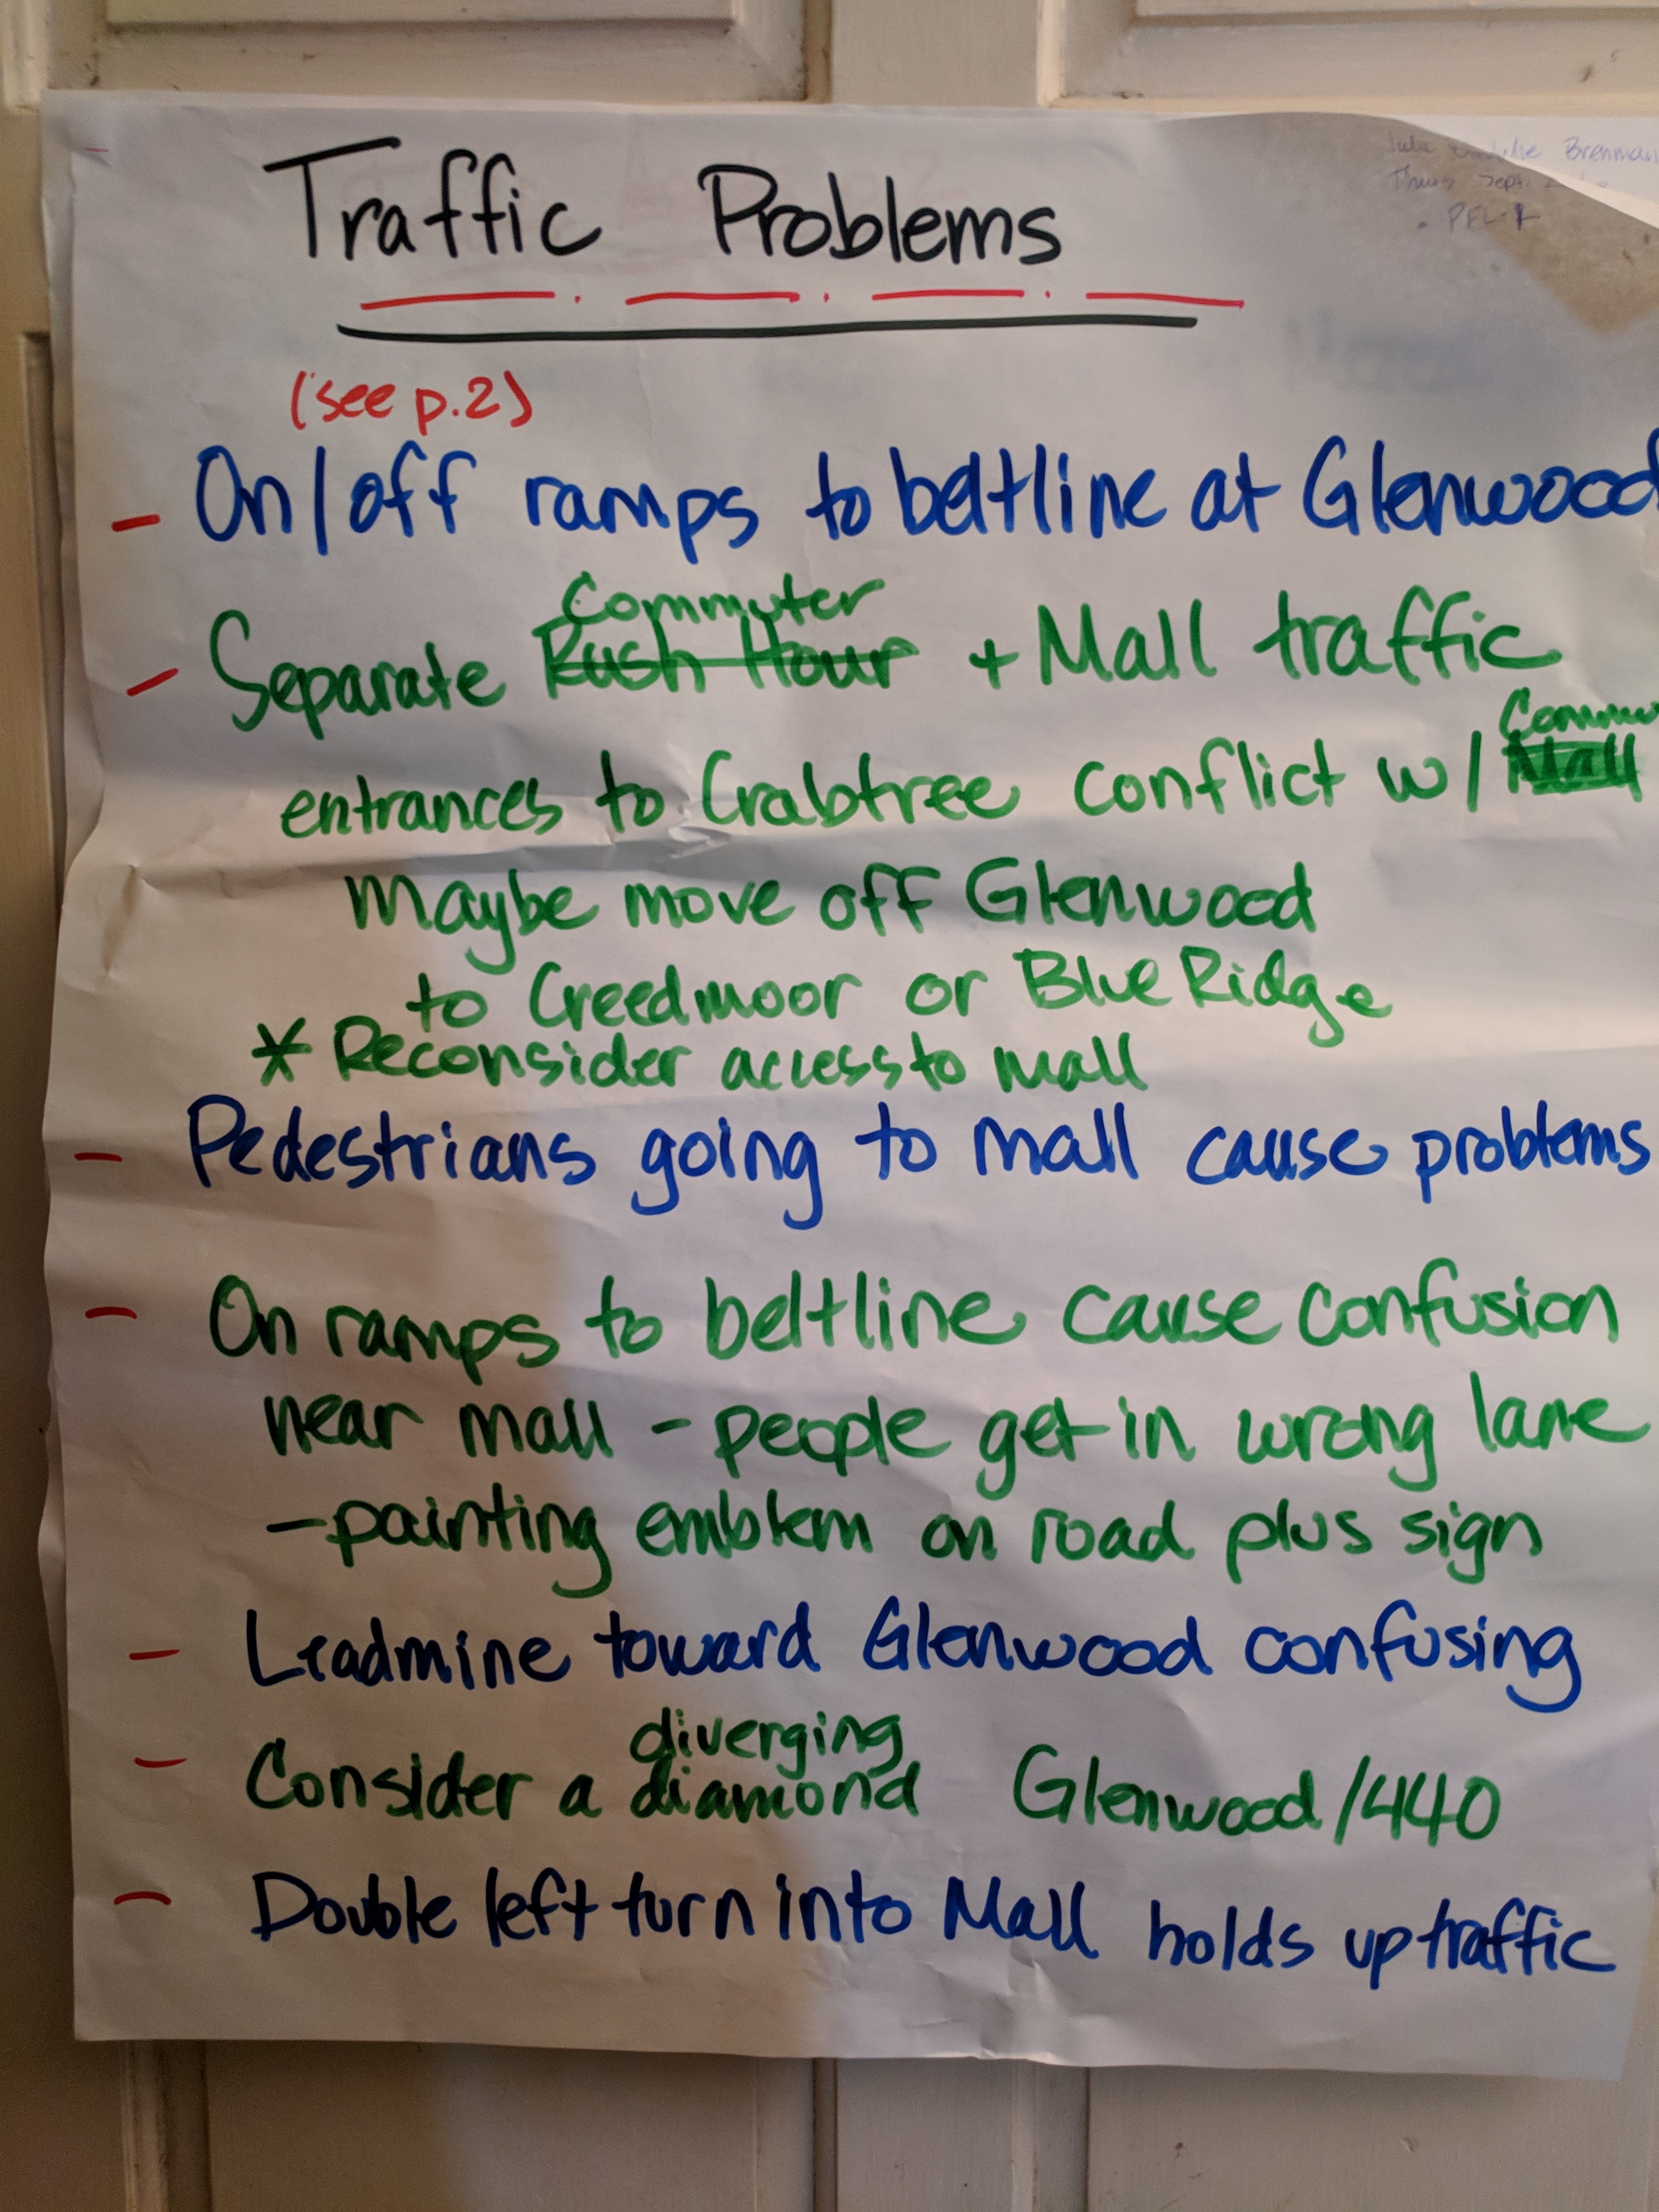 Traffic Problems
(see p.2)
- On/off ramps to beltline at Glenwood
Commuter
- Separate Rush Hour + Mall traffic
Commu
entrances to Crabtree conflict w/ Mall
Maybe move off Glenwood
to Creedmoor or Blue Ridge
* Reconsider access to mall
- Pedestrians going to mall cause problems
- On ramps to beltline cause confusion
near mall - people get in wrong lane
- painting emblem on road plus sign
- Leadmine toward Glenwood confusing
diverging
- Consider a diamond Glenwood/440
- Double left turn into Mall holds up traffic